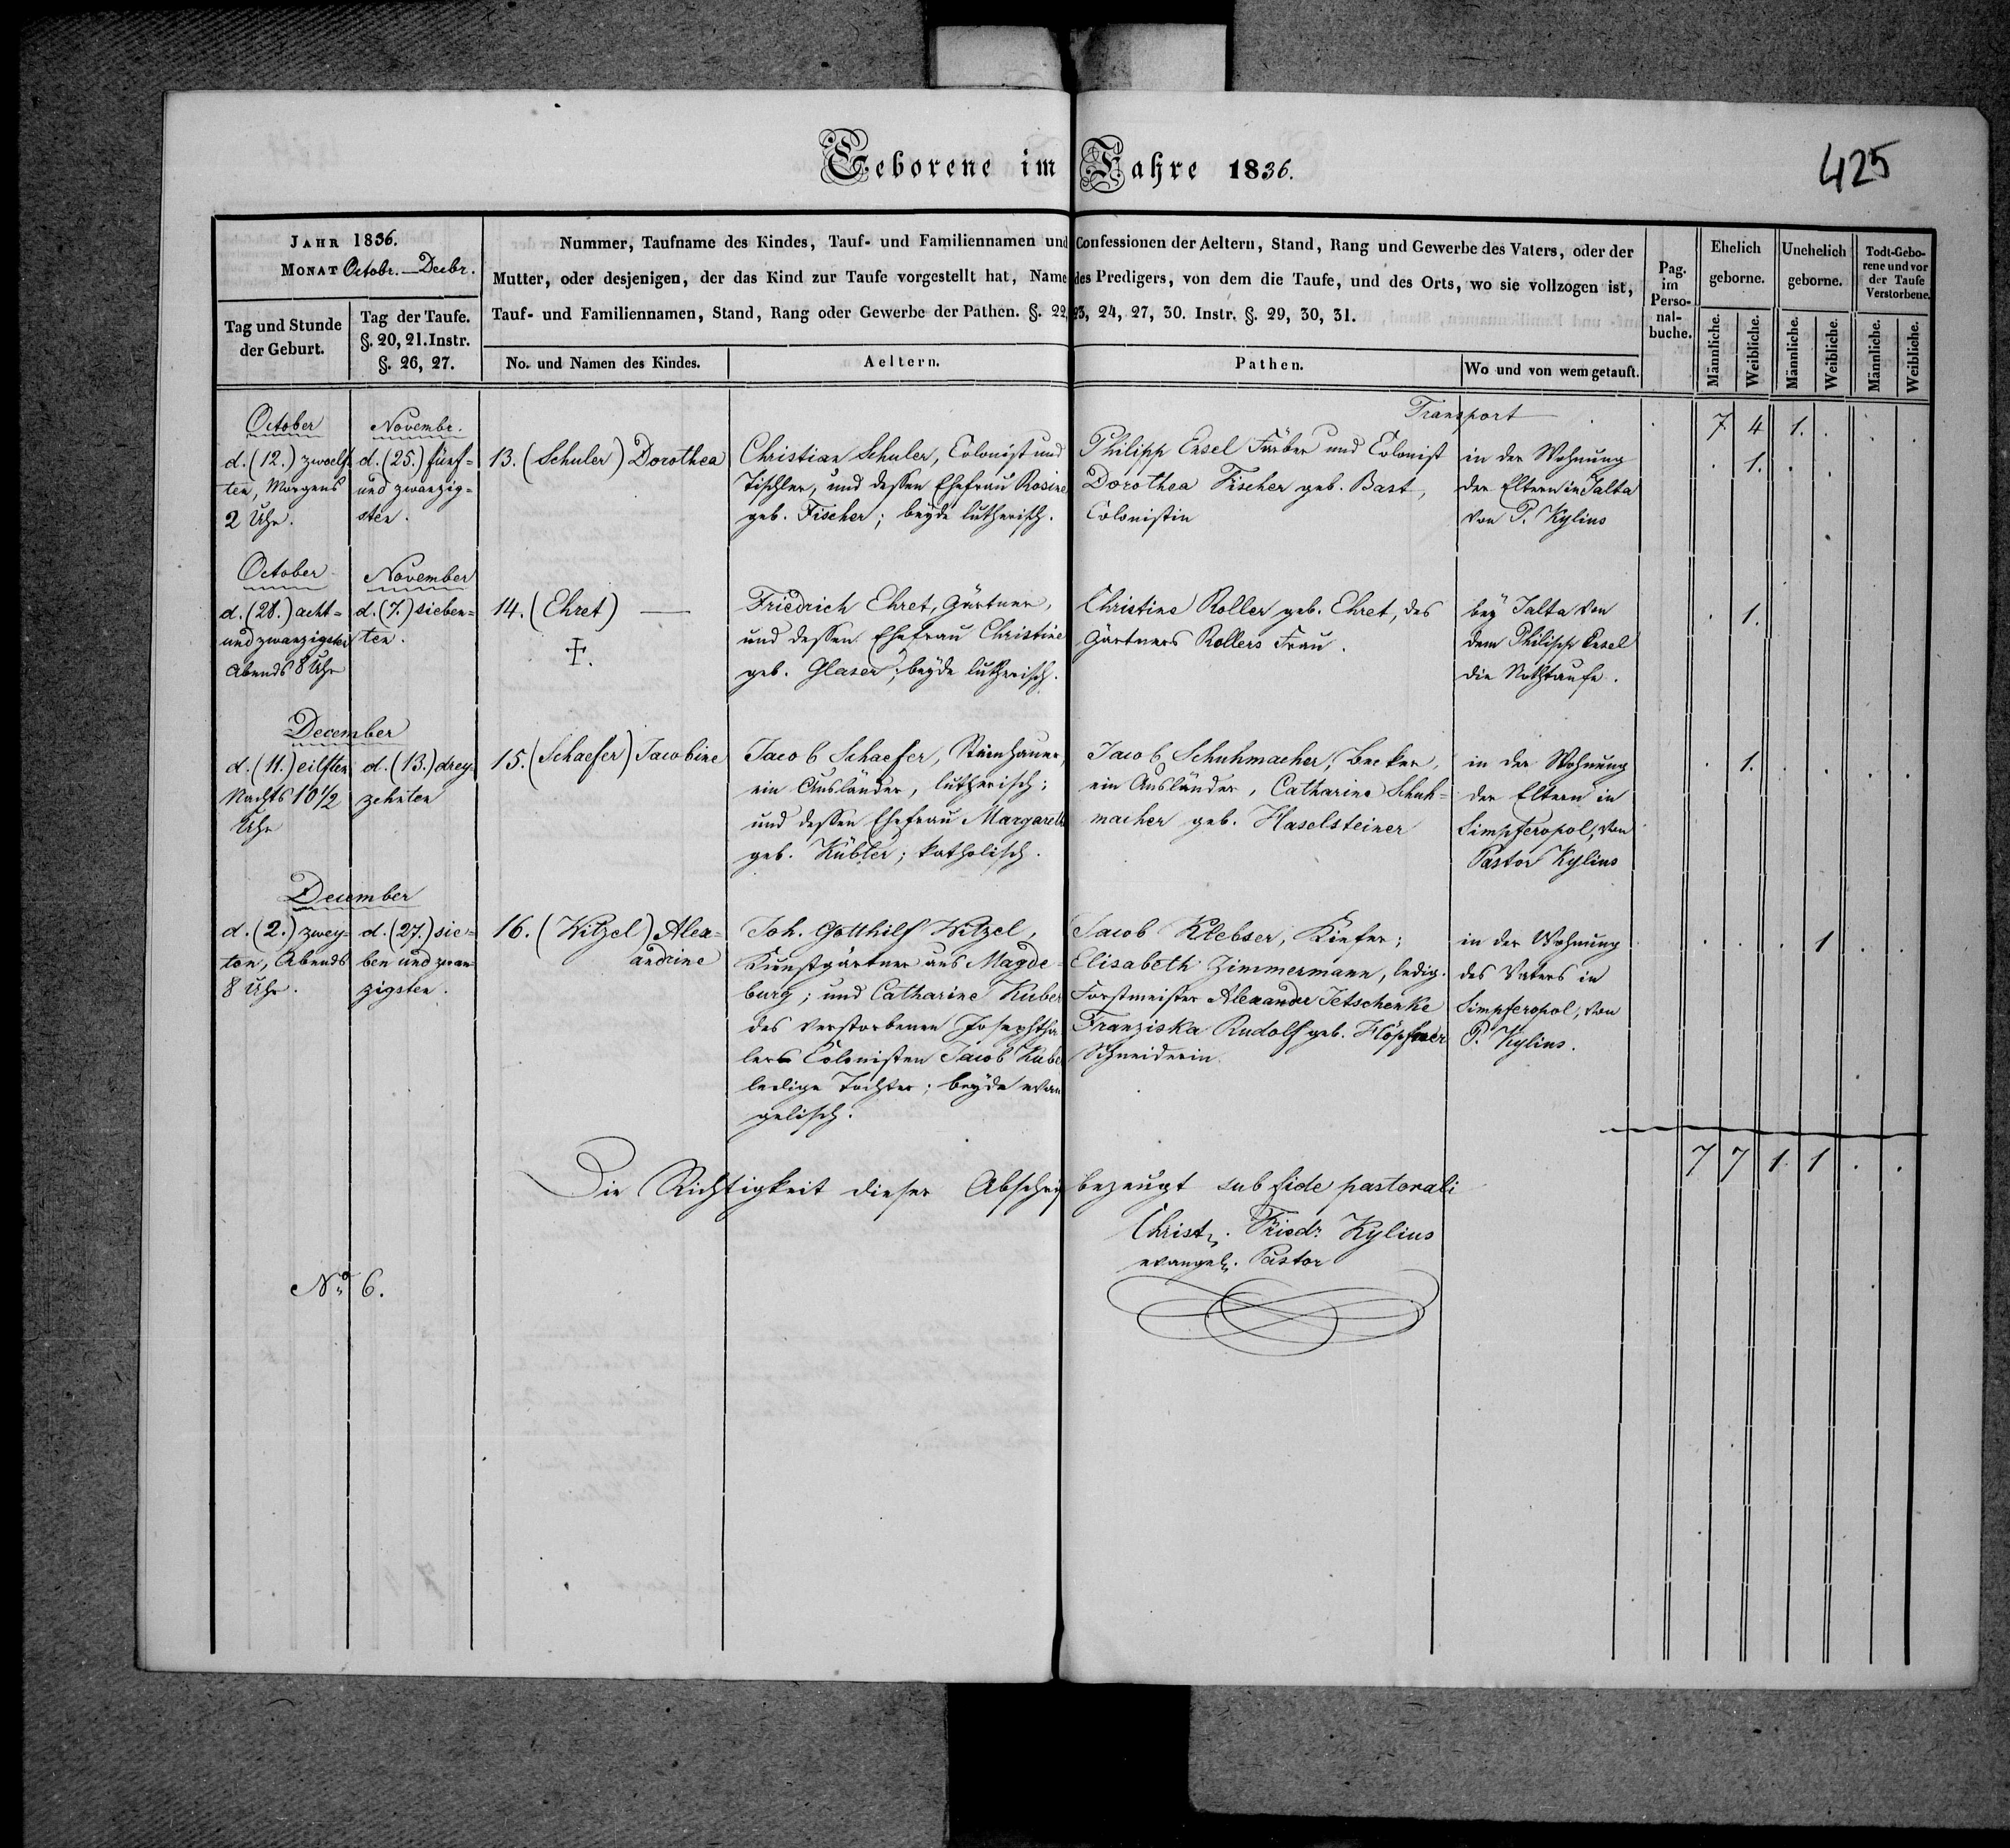 Geborene im Jahre 1836.
425
JAHR 1836.
MONAT Octobr. — Decbr.
Nummer, Taufname des Kindes, Tauf- und Familiennamen und Confessionen der Aeltern, Stand, Rang und Gewerbe des Vaters, oder der
Mutter, oder desjenigen, der das Kind zur Taufe vorgestellt hat, Name des Predigers, von dem die Taufe, und des Orts, wo sie vollzogen ist,
Tauf- und Familiennamen, Stand, Rang oder Gewerbe der Pathen. §. 22, 23, 24, 27, 30. Instr. §. 29, 30, 31.
Tag und Stunde
der Geburt.
Tag der Taufe.
§. 20, 21. Instr.
§. 26, 27.
No. und Namen des Kindes.
Aeltern.
Pathen.
Wo und von wem getauft.
Pag.
im
Perso-
nal-
buche.
Ehelich
geborne.
Unehelich
geborne.
Todt-Gebo-
rene und vor
der Taufe
Verstorbene.
Männliche.
Weibliche.
Männliche.
Weibliche.
Männliche.
Weibliche.
Transport
7 4 1.
October
d. (12.) zwoelf-
ten, Morgens
2 Uhr.
Novembr.
d. (25.) fünf-
und zwanzig-
sten.
13. (Schuler) Dorothea
Christian Schuler, Colonist und
Tischler, und dessen Ehefrau Rosine
geb. Fischer; beyde lutherisch.
Philipp Ensel Färber und Colonist
Dorothea Fischer geb. Bast,
Colonistin
in der Wohnung
der Eltern in Jalta
von P. Kylius
1.
October
d. (28.) acht-
und zwanzigsten
Abends 8 Uhr
November
d. (7.) sieben-
ten.
14. (Ehret) —
Friedrich Ehret, Gärtner,
und dessen Ehefrau Christine
geb. Glaser; beyde lutherisch.
Christine Roller geb. Ehret, des
Gärtners Rollers Frau.
bey Jalta von
dem Philipp Ensel
die Nothtaufe.
1.
December
d. (11.) eilften
Nachts 10 1/2
Uhr
d. (13.) drey-
zehnten
15. (Schaefer) Jacobine
Jacob Schaefer, Steinhauer,
ein Ausländer, lutherisch;
und dessen Ehefrau Margareth
geb. Kübler; katholisch.
Jacob Schuhmacher, Becker,
ein Ausländer, Catharine Schuh-
macher geb. Haselsteiner
in der Wohnung
der Eltern in
Simpferopol, von
Pastor Kylius
1.
December
d. (2.) zwey-
ten, Abends
8 Uhr.
d. (27.) sie-
ben und zwan-
zigsten.
16. (Witzel) Alex-
andrine
Joh. Gotthilf Witzel,
Kunstgärtner aus Magde-
burg; und Catharine Kuber
des verstorbenen Josephtha
lers Colonisten Jacob Kube
ledige Tochter; beyde evan
gelisch.
Jacob Klebser, Kiefer;
Elisabeth Zimmermann, ledig.
Forstmeister Alexander Jetschenke
Franziska Rudolf geb. Höpfner
Schneiderin.
in der Wohnung
des Vaters in
Simpferopol, von
P. Kylius.
1
7 7 1 1
Die Richtigkeit dieser Abschrift bezeugt sub fide pastorali
Christ. Friedr. Kylius
evangel. Pastor
No 6.